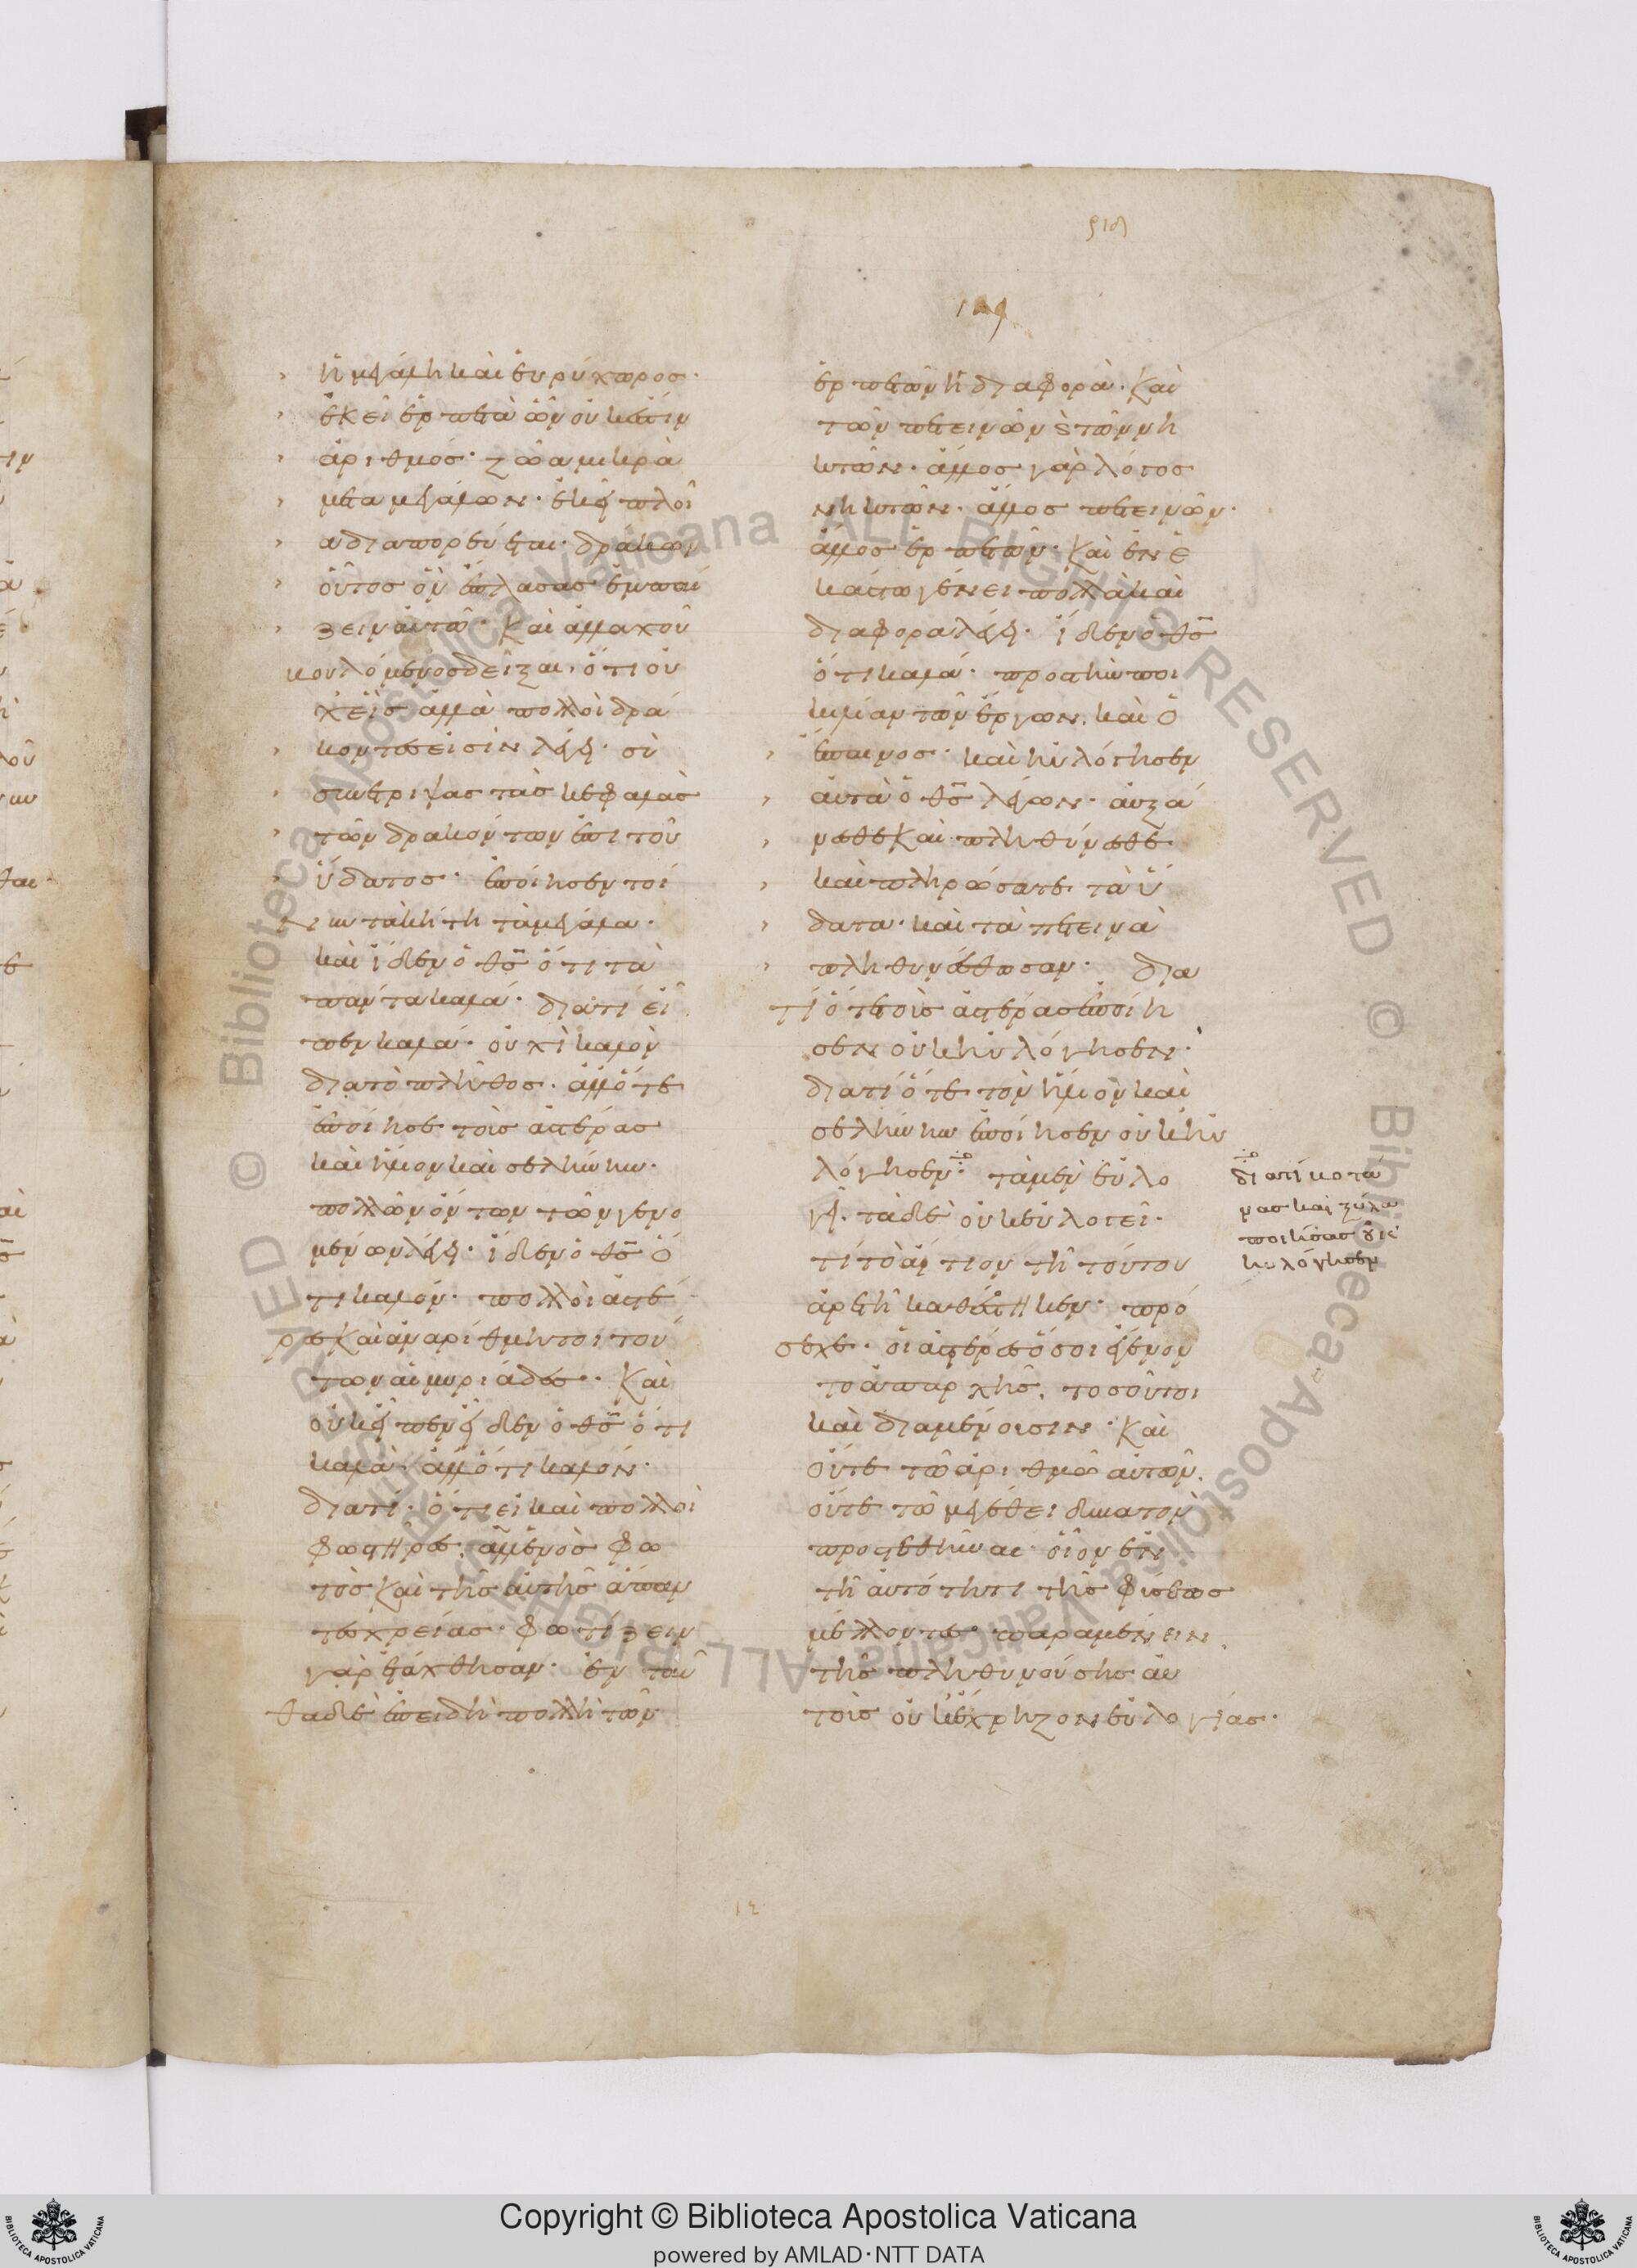 ἡ μεγάλη καὶ εὐρύχωρος·
ἐκεῖ ἑρπετὰ ὧν οὐκ ἔστιν
ἀριθμός· ζῶα μικρὰ
μετὰ μεγάλων· ἐκεῖ πλοῖ
α διαπορεύεται· δράκων
οὗτος ὃν ἔπλασας ἐμπαί
ζειν αὐτῶ· Καὶ ἀλλαχοῦ
βουλόμενος δεῖξαι, ὅτι οὐ
χ εἷς ἀλλὰ πολλοὶ δρά
κοντες εἰσὶν λέγει· σὺ
συνέτριψας τὰς κεφαλὰς
τῶν δρακόντων ἐπι τοῦ
ὕδατος· ἐποίησεν τοί
νυν τὰ κήτη τὰ μεγάλα·
καὶ ἴδεν ὁ θς ὅτι τὰ
πάντα καλά· διατί εἶ
πεν καλά· οὐχὶ καλὸν
διὰ τὸ πλῆθος· ἀλλ' ὅτε
ἐποίησε τοὺς ἀστέρας
καὶ ἥλιον καὶ σελήνην·
πολλῶν ὄντων τῶν γενο
μένων λέγει· ἴδεν ὁ θς ὅ
τι καλόν· πολλοὶ ἀστέ
ρες καὶ ἀναρίθμητοι τού
των αἱ μυριάδες· Καὶ
οὐκ εἶπεν εἶδεν ὁ θς ὅτι
καλὰ· ἀλλ' ὅτι καλόν·
διατί· ὅτι εἰ καὶ πολλοὶ
φωστῆρες, ἀλλ' ἑνὸς φω
τὸς καὶ τῆς αὐτῆς ἅπαν
τες χρείας· φωτίζειν
γὰρ ἐτάχθησαν· ἐνταῦ
θα δὲ ἐπειδὴ πολλὴ τῶν
ἑρπετῶν ἡ διαφορὰ· Καὶ
τῶν πετεινῶν ϛ τῶν νη
κτῶν· ἄλλος γὰρ λόγος
νηκτῶν· ἄλλος πετεινῶν·
ἄλλος ἑρπετῶν· Καὶ ἐν ἑ
κάστω γένει πολλὰ καὶ
διάφορα λέγει· ἴδεν ὁ θς
ὅτι καλά· προστίθησι
κἀνταυτῶν ἔργων, καὶ ὁ
ἔπαινος· καὶ ηὐλόγησεν
αὐτὰ ὁ θς λέγων· αὐξά
νεσθε Καὶ πληθύνεσθε
καὶ πληρώσατε τὰ ὕ
δατα· καὶ τὰ πετεινὰ
πληθυνέσθωσαν· δια
τί ὅτε τοὺς ἀστέρας ἐποίη
σεν οὐκ ηὐλόγησεν·
διατί ὅτε τὸν ἥλιον καὶ
σελήνην ἐποίησεν οὐκ ηὐ
λόγησεν· τὰ μὲν εὐλο
γεῖ· τὰ δὲ οὐκ εὐλογεῖ·
τί τὸ αἴτιον τῆ τούτου
ἀρετῆ καθέστηκεν· πρό
σεχε· οἱ ἀστέρες ὅσοι ἐγένον
το ἀπαρχῆς, τοσοῦτοι
καὶ διαμένουσιν· Καὶ
οὔτε τῶ ἀριθμῶ αὐτῶν,
οὔτε τῶ μεγέθει δυνατὸν
προστεθῆναι· οἷον ἐν
τῆ αὐτότητι τῆς φύσεως
μέλλοντες παραμένειν,
τῆς πληθυνούσης αὐ
τοὺς οὐκ ἔχρηζον εὐλογίας·
διατί βοτά
νας καὶ ξύλα
ποιήσας οὐκ
ηὐλόγησεν
Copyright © Biblioteca Apostolica Vaticana
powered by AMLAD·NTT DATA